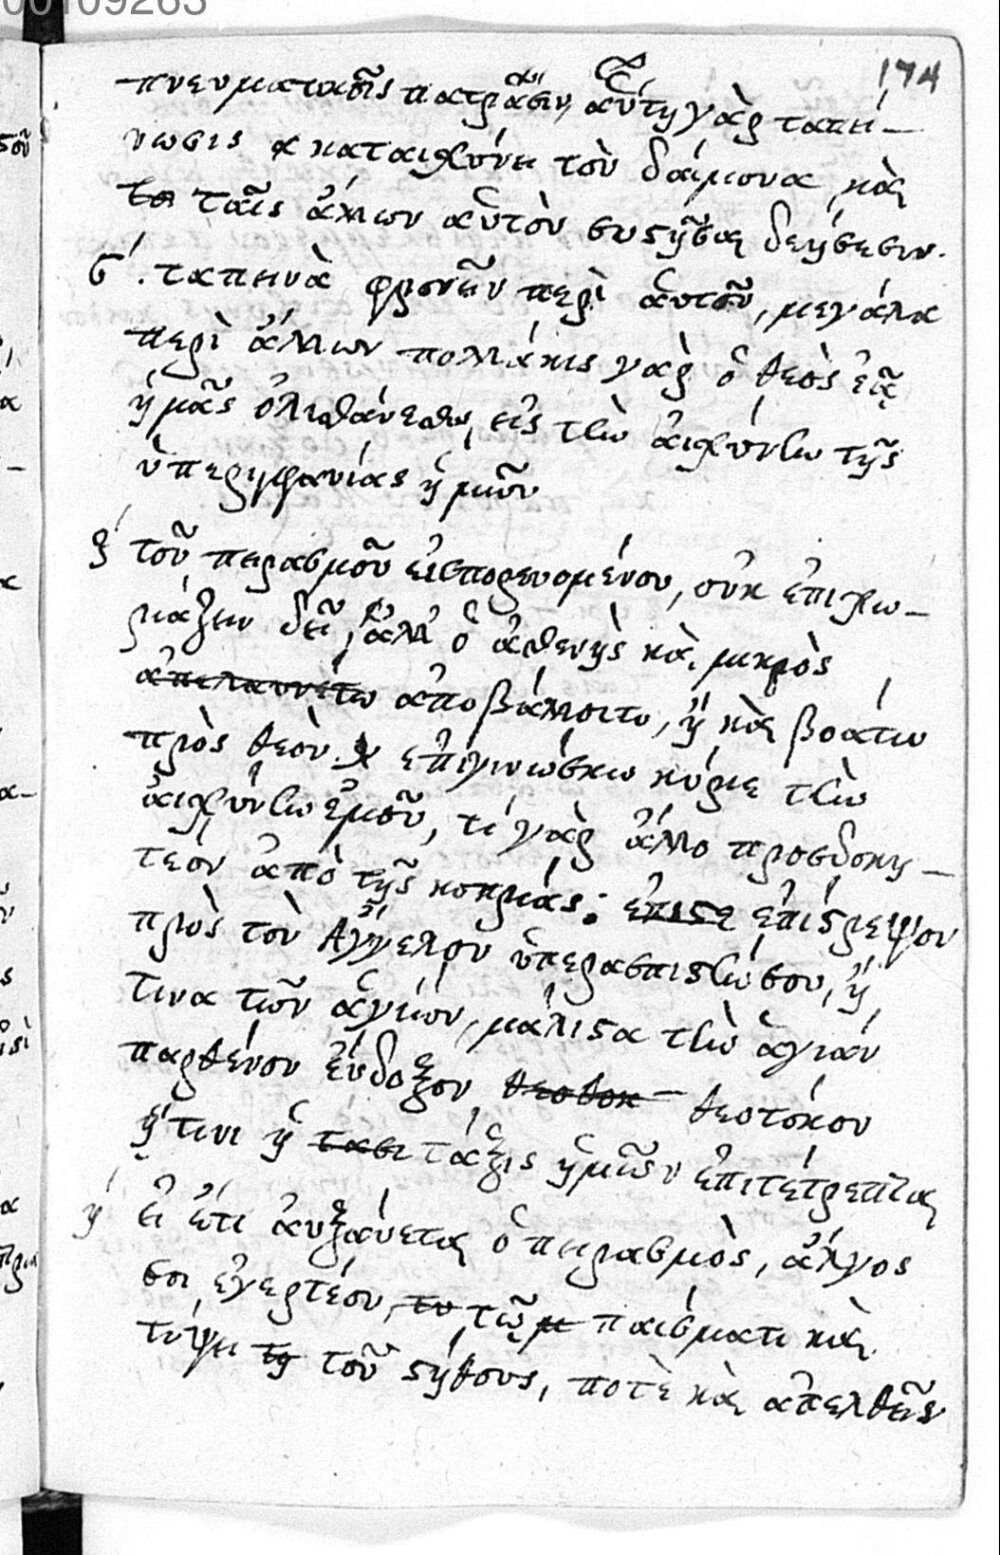 00109263
174
πνευματικοῖς πατράσιν, αὕτη γὰρ ταπεί-
νωσις καταισχύνει τὸν δαίμονα, καὶ
ταῖς ἄλλων αὐτὸν συστῆσαι δεήσεσιν.
ϛ΄. ταπεινὰ φρονεῖν περὶ αὑτοῦ, μεγάλα
περὶ ἄλλων πολλάκις γὰρ ὁ θεὸς ἐᾷ
ἡμᾶς ὀλισθάνεσθαι, εἰς τὴν αἰσχύνην τῆς
ὑπερηφανίας ἡμῶν
ζ΄ τοῦ πειρασμοῦ εἰσπορευομένου, οὐκ ἐπιχω-
ριάζειν δεῖ, ἀλλ' ὁ ἀσθενὴς καὶ μικρὸς
ἀπελαυνέτω ἀποβάλλοιτο, ἢ καὶ βοάτω
πρὸς θεὸν ἐπιγινώσκω κύριε τὴν
αἰσχύνην ἐμοῦ, τί γὰρ ἄλλο προσδοκη-
τέον ἀπὸ τῆς κοπρίας; ἐπιστ ἐπίστρεψον
πρὸς τὸν Ἄγγελον ὑπερασπιστήν σου, ἤ
τινα τῶν ἁγίων, μάλιστα τὴν ἁγίαν
παρθένον ἔνδοξον θεοτοκ- θεοτόκον
ᾗ τινι ἡ ταξι τάξις ἡμῶν ἐπιτέτρεπται
η΄ εἰ ἔτι αὐξάνεται ὁ πειρασμὸς, ἄλγος
σοι ἐγερτέον, το τῷ παίσματι καὶ
τύψει τη τοῦ στήθους, ποτὲ καὶ ἀπελθεῖν